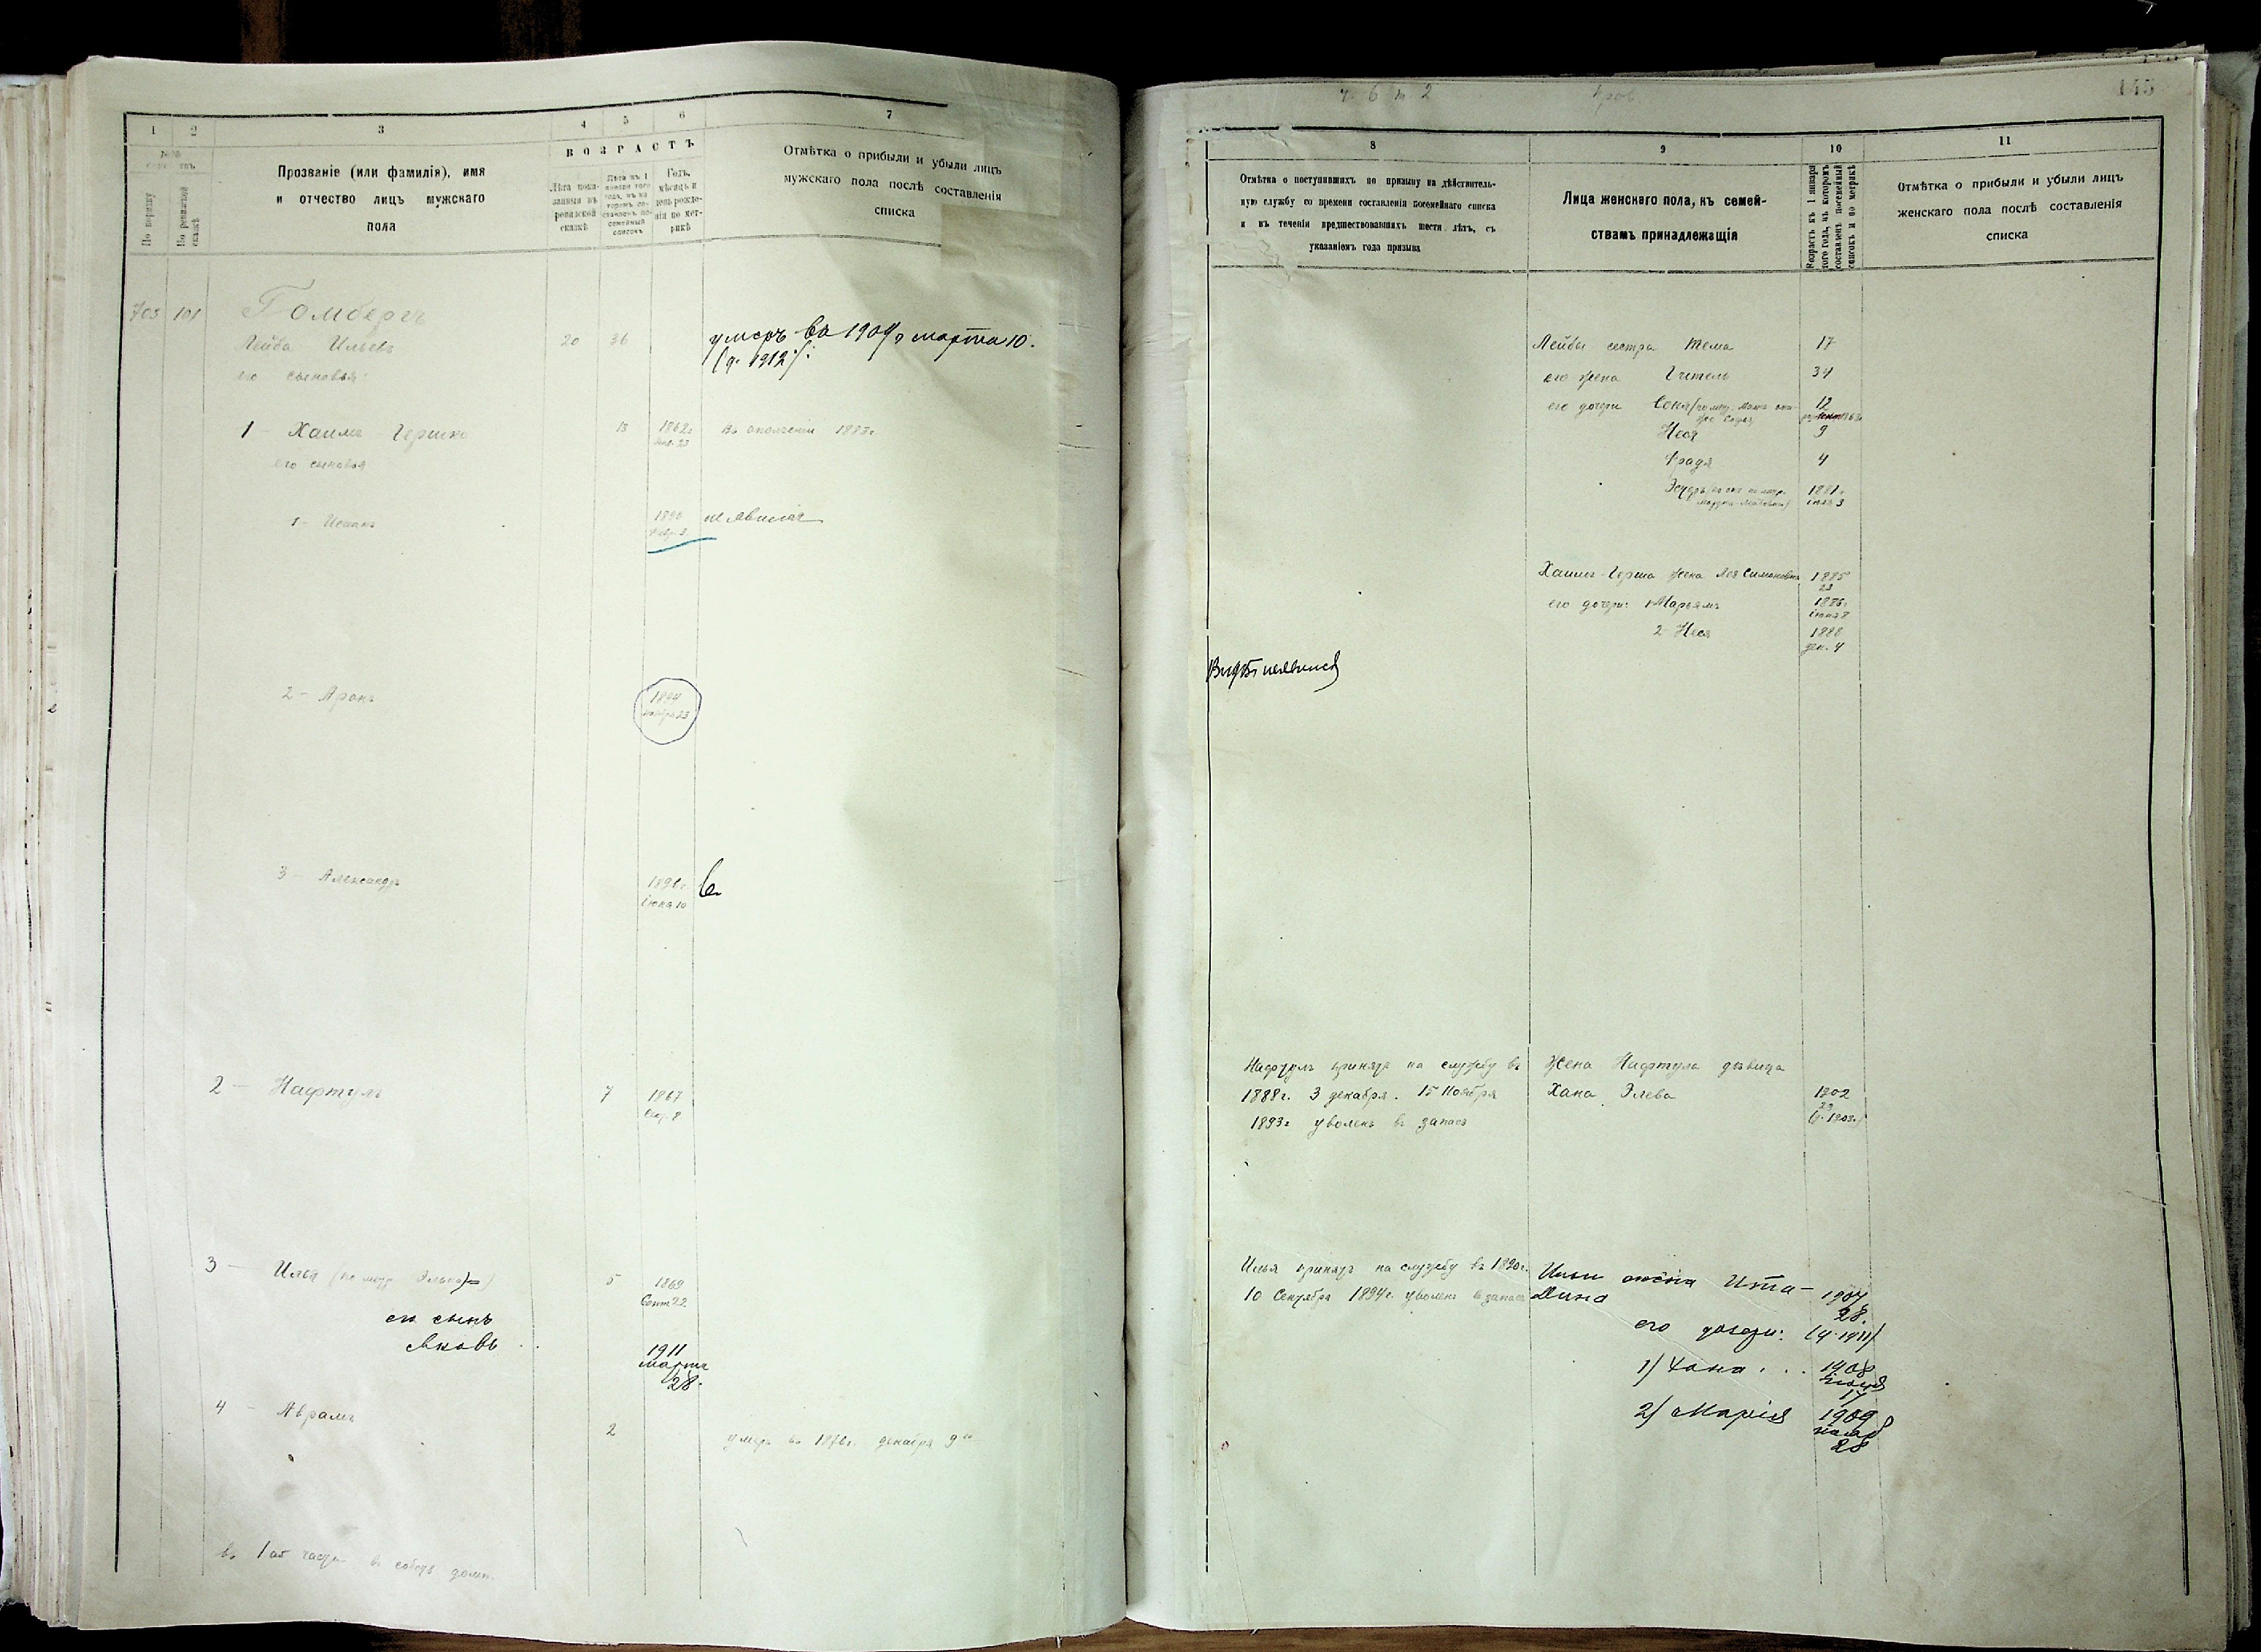 1 2 3 4 5 6 7
№№ семействъ.
По порядку
По ревизской сказкѣ
Прозваніе (или фамилія), имя
и отчество лицъ мужскаго
пола
ВОЗРАСТЪ
Лѣта пока-
занныя въ
ревизской
сказкѣ
Лѣта къ 1
января того
года, въ ко-
торомъ со-
ставленъ по-
семейный
списокъ
Годъ,
мѣсяцъ и
день рожде-
нія по мет-
рикѣ
Отмѣтка о прибыли и убыли лицъ
мужскаго пола послѣ составленія
списка
703 101 Гомбергъ
Лейба Ильевъ 20 36 умеръ въ 1909 г марта 10.
(д. 1912):
его сыновья:
1 - Хаимъ-Гершко 13 1862г Въ ополченіи 1883г
янв. 23
его сыновья
1 - Исаакъ 1890 не явился
Февр. 3
2 - Аронъ 1894
23
3 - Александръ 189 г.
Іюня 10
2 - Нафтулъ 7 1867
8
3 - Илья (по метр. Элья) 5 1869
Сент 22
его сынъ
Яковъ 1911
марта
28.
4 - Аврамъ 2
умеръ въ 187 г. декабря 9го
въ 1ой части въ собств домѣ.
ч. 6 2
145
8 9 10 11
Отмѣтка о поступившихъ по призыву на дѣйствитель-
ную службу со времени составленія посемейнаго списка
и въ теченіи предшествовавшихъ шести лѣтъ, съ
указаніемъ года призыва
Лица женскаго пола, къ семей-
ствамъ принадлежащія
Возрастъ къ 1 января
того года, въ которомъ
составленъ посемейный
списокъ и по метрикѣ
Отмѣтка о прибыли и убыли лицъ
женскаго пола послѣ составленія
списка
Лейбы сестра Тема 17
его жена Гитель 34
его дочери Соня (по метр. 12
Неся 9
Фрадя 4
Эсѳирь 1881г
іюля 3
Хаима-Герша жена Лея Симоновна 1885
23
его дочери: 1 Марьямъ 1886г
іюня 8
2 - Неся 1888
дек. 4
не явился
Нафтулъ принятъ на службу въ Жена Нафтула дѣвица
1888г. 3 декабря. 15 Ноября Хана Элева 1902
1893г уволенъ въ запасъ 29
(д. 1903г.)
Илья принятъ на службу въ 1890г. Ильи жена Ита-
10 Сентября 1894г. уволенъ въ запасъ Дина 1907
28.
его дочери: (д. 1911)
1) Хана . . 1908
17
2) Марія 1909
28